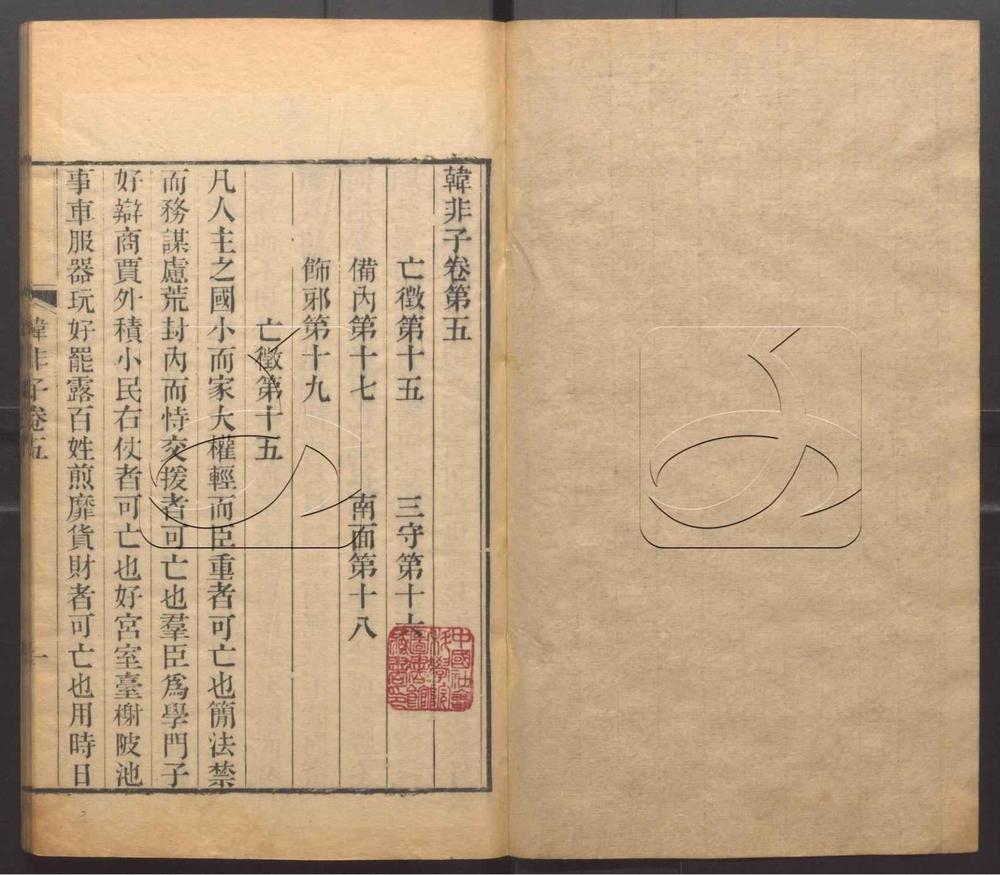 韓非子卷第五
亡徵第十五　三守第十六
備內第十七　南面第十八
飾邪第十九
亡徵第十五
凡人主之國小而家大權輕而臣重者可亡也簡法禁
而務謀慮荒封內而恃交援者可亡也羣臣爲學門子
好辯商賈外積小民右仗者可亡也好宮室臺榭陂池
事車服器玩好罷露百姓煎靡貨財者可亡也用時日
韓非子卷五
一
中國社會
科學院
圖書館
藏書印